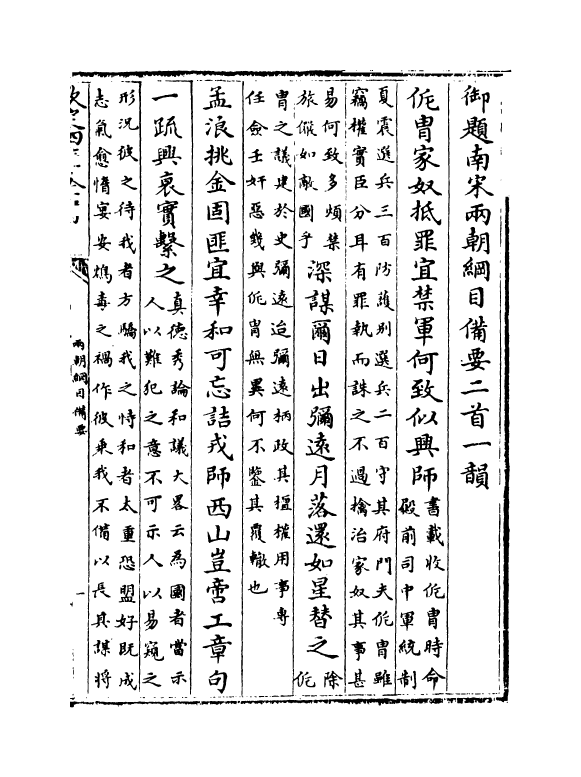 御題南宋兩朝綱目備要二首一韻
侂胄家奴抵罪宜禁軍何致似興師
書載收侂胄時命
殿前司中軍統制
夏震選兵三百防護别選兵二百守其府門夫侂胄雖
竊權實臣分耳有罪執而誅之不過擒治家奴其事甚
易何致多煩禁
旅儼如敵國乎
深謀爾日出彌遠月落還如星替之
除
侂
胄之議建於史彌遠迨彌遠柄政其擅權用事專
任憸壬奸惡幾與侂胄無異何不鑒其覆轍也
孟浪挑金固匪宜幸和可忘詰戎師西山豈啻工章句
一疏興衰實繫之
真德秀論和議大畧云為國者當示
人以難犯之意不可示人以易窺之
形況彼之待我者方驕我之恃和者太重恐盟好既成
志氣愈惰宴安鴆毒之禍作彼乘我不備以長其謀將
兩朝綱目備要
一